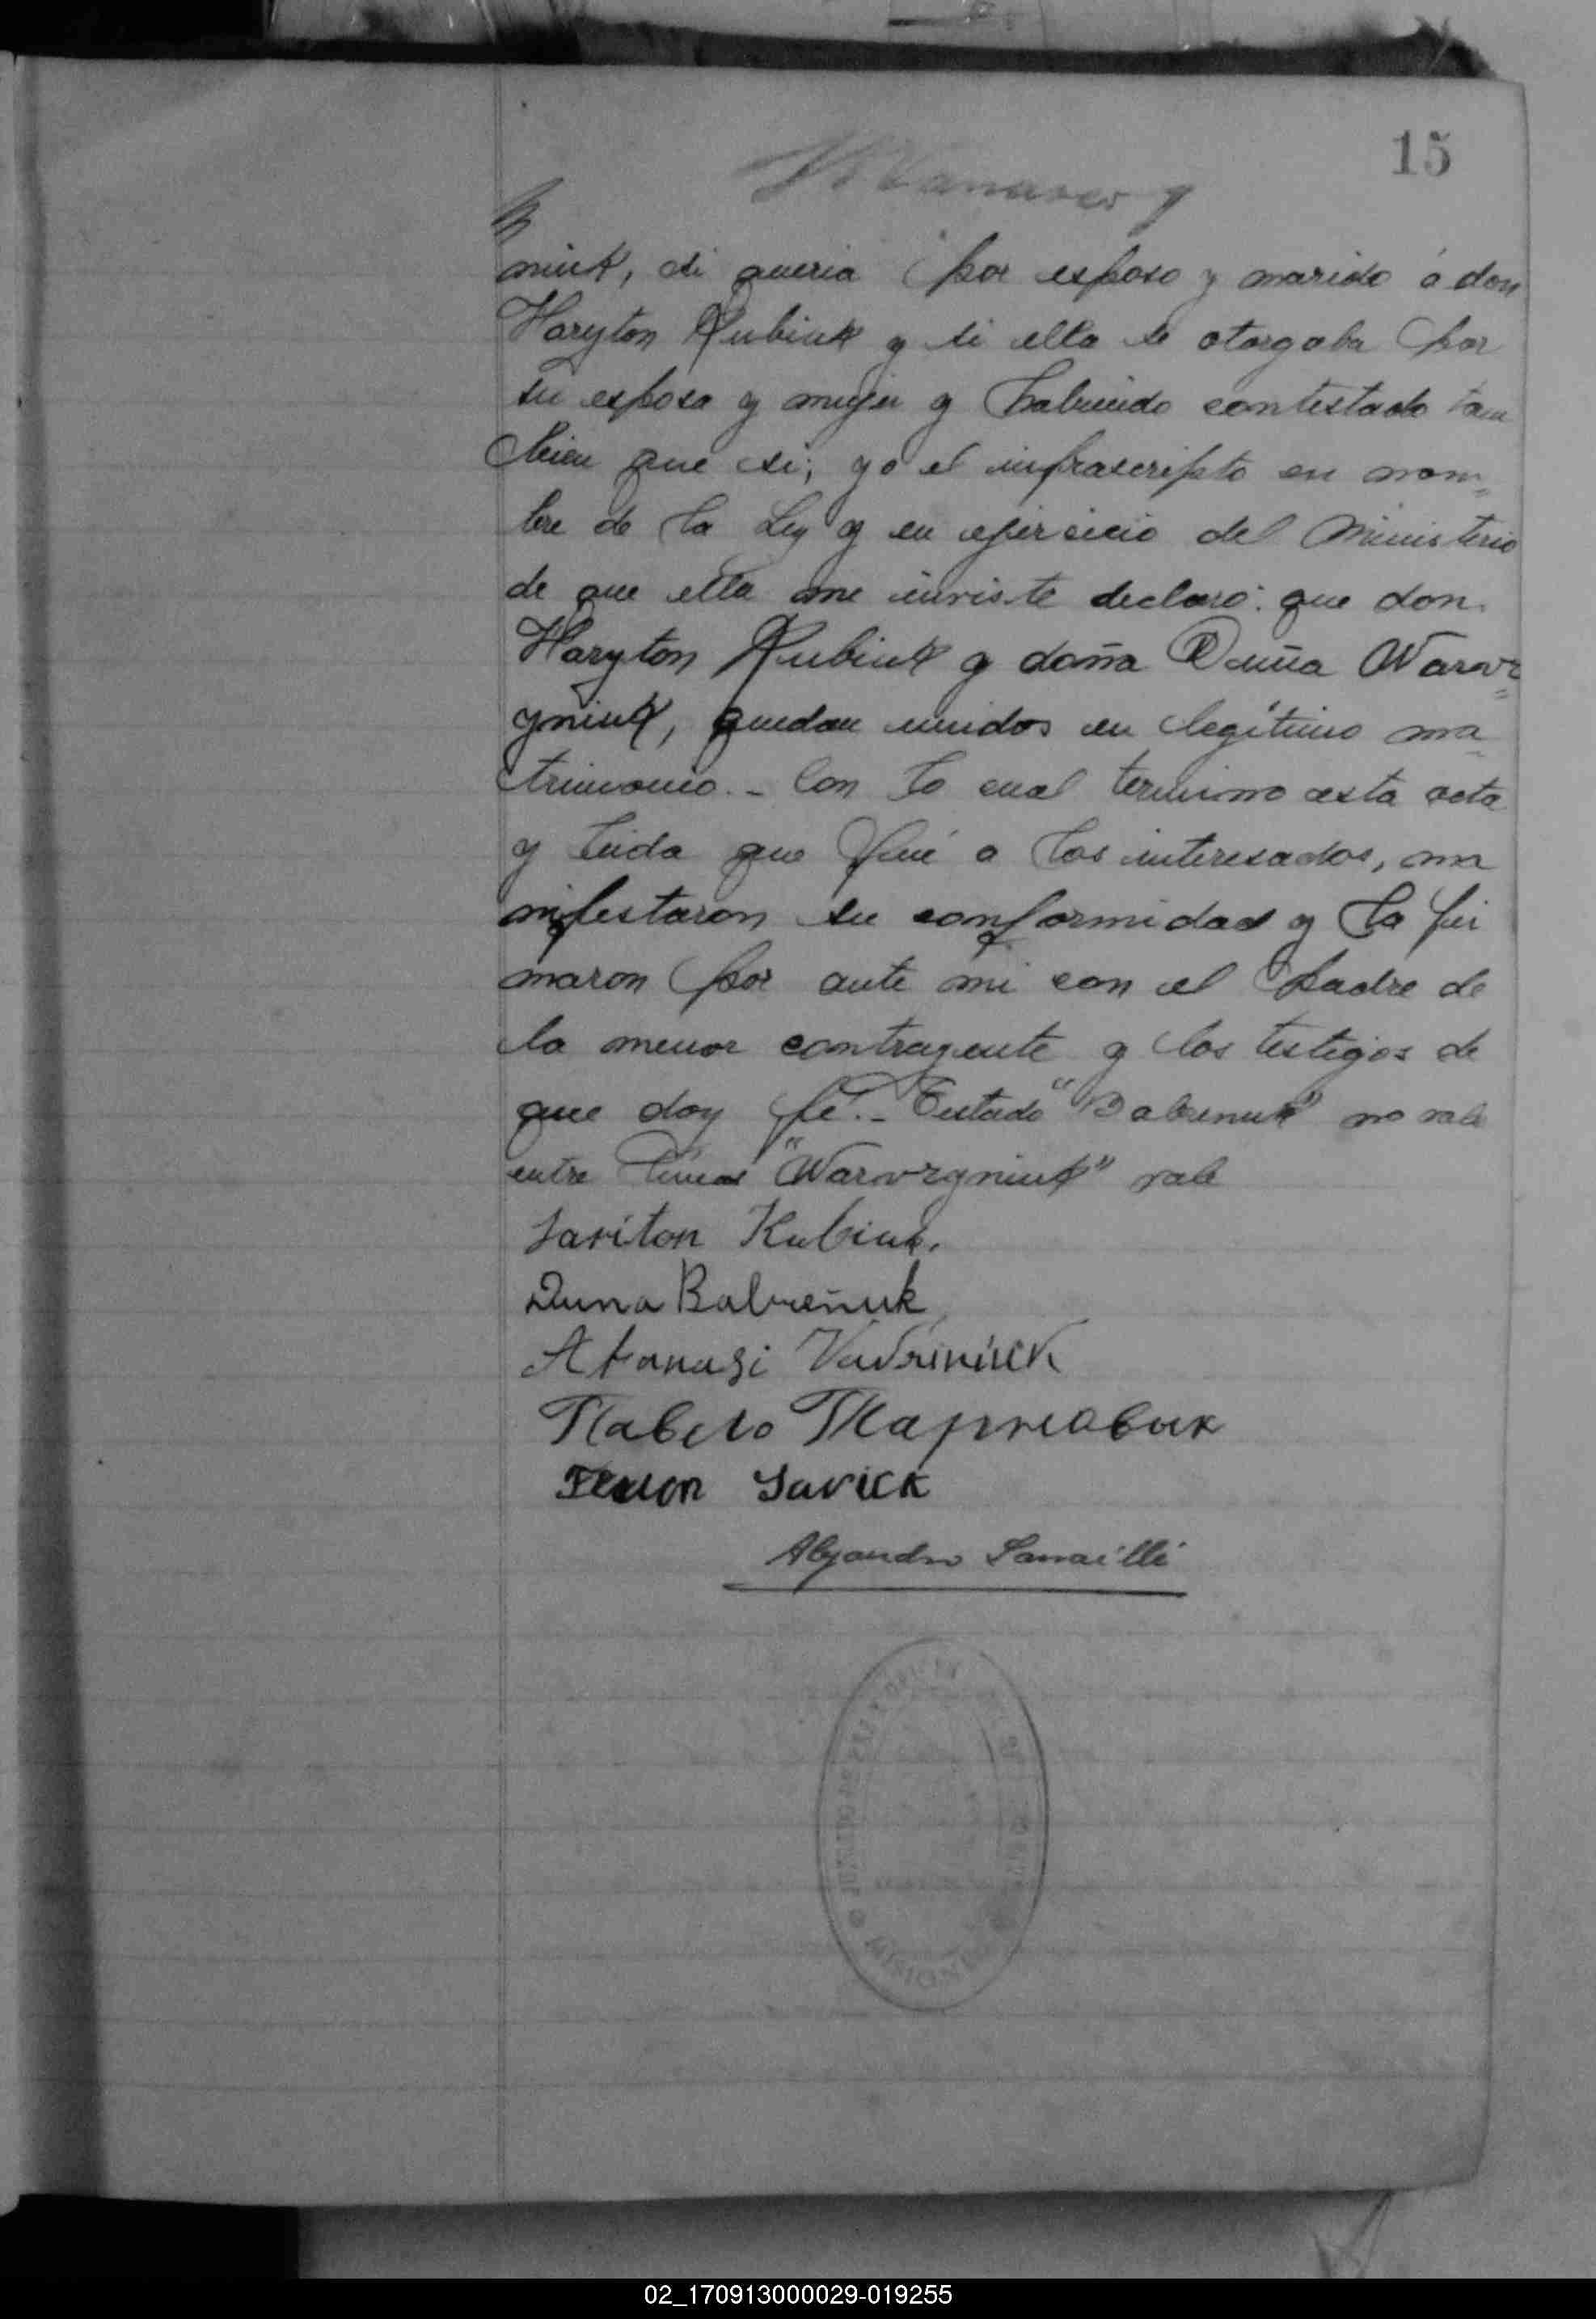 15
niuk, si queria por esposo y marido á don
Haryton Kubiuk y si ella se otorgaba por
su esposa y mujer y habiendo contestado tam
bien que si; yo el infrascripto en nom=
bre de la Ley y en ejercicio del Ministerio
de que ella me inviste declaro: que don
Haryton Kubiuk y doña Duña Warvr=
yniuk, quedan unidos en legítimo ma=
trimonio.- Con lo cual termino esta acta
y leida que fué a los interesados, ma
nifestaron su conformidad y la fir
maron por ante mi con el padre de
la menor contrayente y los testigos de
que doy fé.- Testado "Babrenuk" no vale
entre líneas "Warvryniuk" vale
Jariton Kubiuk.
Duna Babreñuk
Afanasi
Павело
Semon Savick
Alejandro
MISIONES
02_170913000029-019255